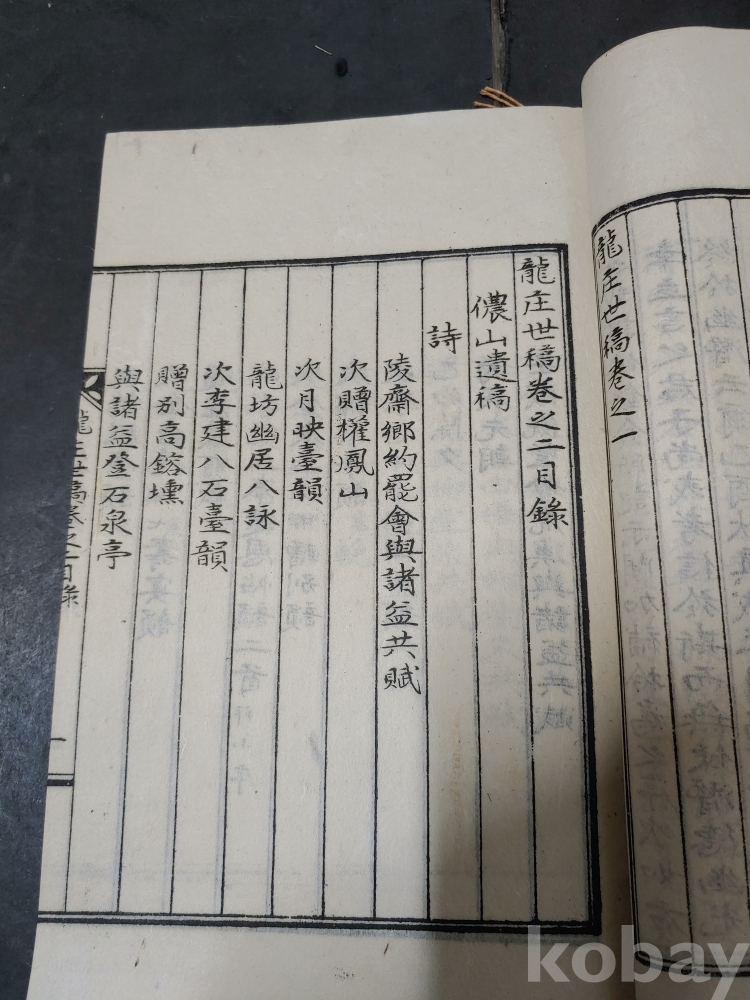 龍庄世稿卷之一
龍庄世稿卷之二目錄
儂山遺稿
詩
陵齋鄉約罷會與諸益共賦
次贈權鳳山
次月映臺韻
龍坊幽居八詠
次李建八石臺韻
贈別高鎔壎
與諸益登石泉亭
kobay